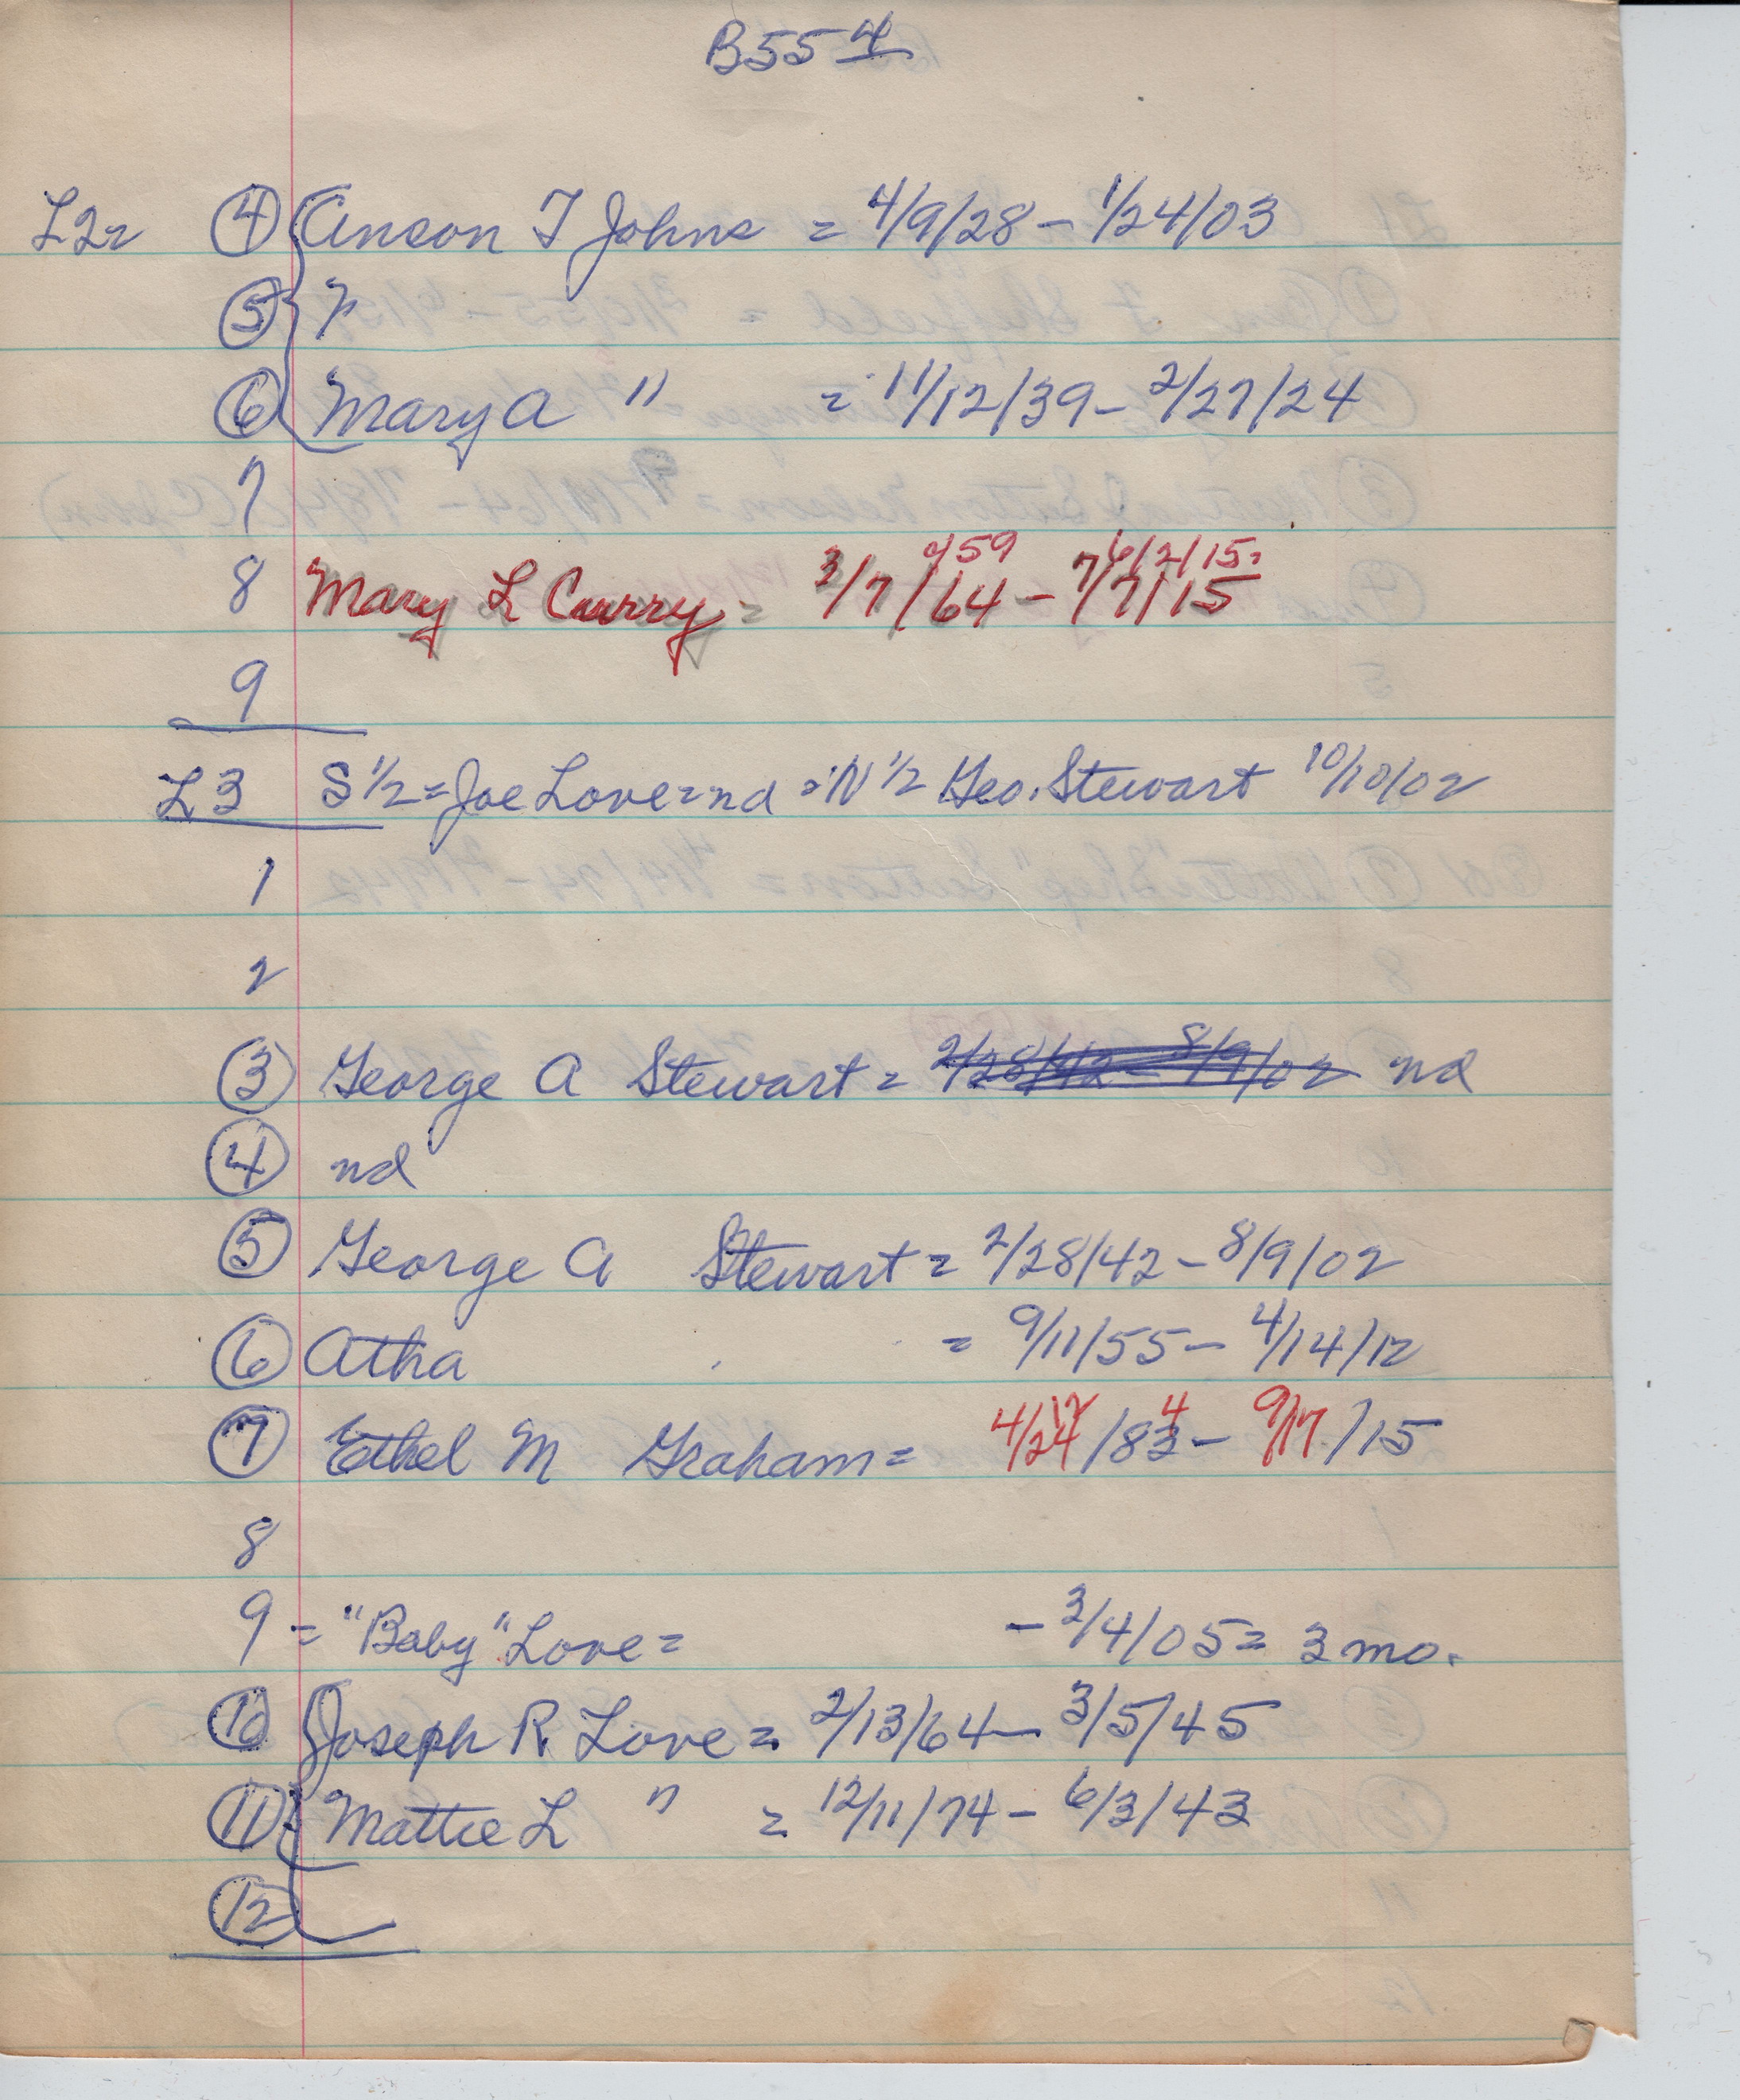 B55 4
L2r 4 Anson T Johns = 4/9/28 - 1/24/03
5
6 Mary A " = 11/12/39 - 2/27/24
7
/59 6/2/15
8 Mary L Curry = 3/7/64 - 7/7/15
9
L3 S 1/2 = Joe Love = nd = N 1/2 Geo. Stewart 10/10/02
1
2
3 George A Stewart = 2/28/42 - 8/9/02 nd
4 nd
5 George A Stewart = 2/28/42 - 8/9/02
6 Atha = 9/11/55 - 4/14/12
12 4
7 Ethel M Graham = 4/24/83 - 9/17/15
8
9 = "Baby" Love = - 3/4/05 = 3 mo.
10 Joseph R Love = 2/13/64 - 3/5/45
11 Mattie L " = 12/11/74 - 6/3/43
12